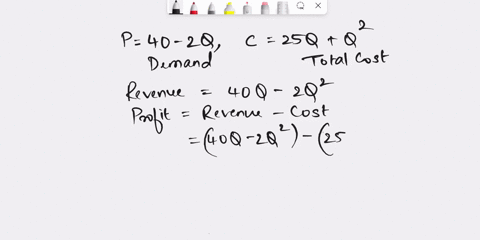 P = 40 - 2Q, C = 25Q + Q²
Demand Total Cost
Revenue = 40Q - 2Q²
Profit = Revenue - Cost
= (40Q - 2Q²) - (25